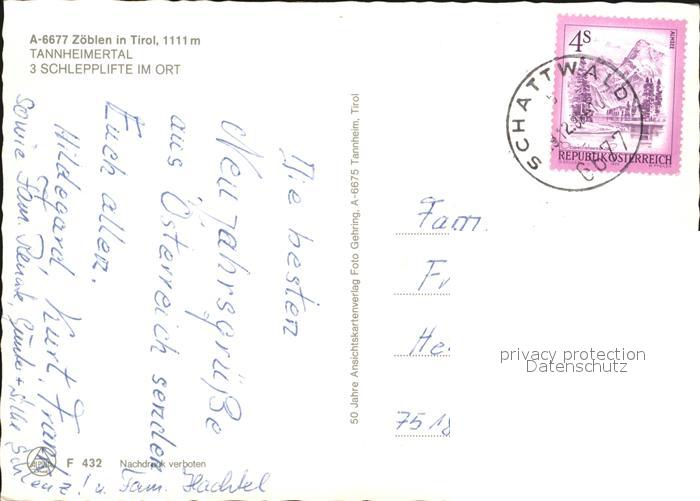 A-6677 Zöblen in Tirol, 1111 m
TANNHEIMERTAL
3 SCHLEPPLIFTE IM ORT
Die besten
Neujahrsgrüße
aus Österreich senden
Euch allen.
Hildegard Kurt, Franz
sowie Fam. Renate, Günter +
u. Fam. Hachtel
50 Jahre Ansichtskartenverlag Foto Gehring, A-6675 Tannheim, Tirol
F 432 Nachdruck verboten
4 S
ALMSEE
REPUBLIK ÖSTERREICH
SCHATTWALD
6677
Fam.
Fr
He
751
privacy protection
Datenschutz